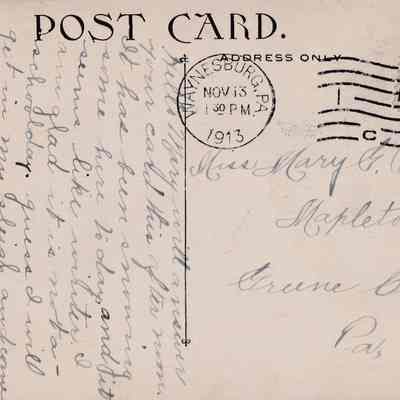 POST CARD.
ADDRESS ONLY
WAYNESBURG, PA.
NOV 13
1 30 PM
1913
1
C
Miss Mary G.
Mapleto
Greene C
Pa,
Hello Mary will answer
your card this after noon.
It has been snowing
some here today and it
seems like winter. I
am glad it is not a
school day. guess I will
get in my sleigh and come